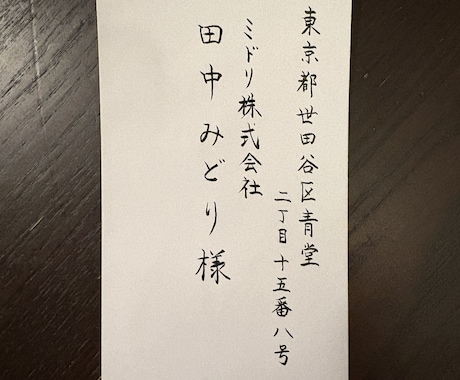 東京都世田谷区青堂
二丁目十五番八号
ミドリ株式会社
田中みどり様